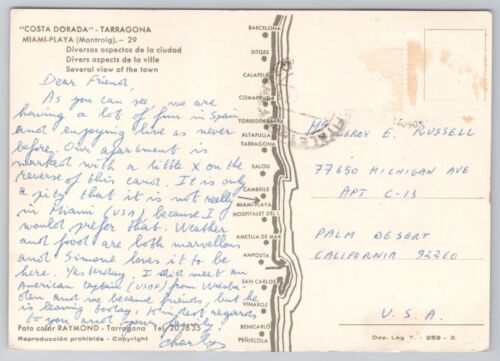 "COSTA DORADA" - TARRAGONA
MIAMI-PLAYA (Montroig). - 29
Diversos aspectos de la ciudad
Divers aspects de la ville
Several view of the town
Dear Friend,
As you can see we are
having a lot of fun in Spain
and enjoying live as never
before. Our apartment is
marked with a little X on the
reverse of this card. It is only
a pity that it is not really
in Miami (USA) because I
would prefer that. Weather
and food are both marvellous
and Simone loves it to be
here. Yesterday I did meet an
American Captain (USAF) from Wiesba-
den and we became friends, but he
is leaving today. Kindest regards
to you and your family
Charley
Foto color RAYMOND - Tarragona Tel. 20 76 35
Reproducción prohibida - Copyright
BARCELONA
SITGES
CALAFELL
COMARRUGA
TORREDEMBARRA
ALTAFULLA
TARRAGONA
SALOU
CAMBRILS
MIAMI-PLAYA
HOSPITALET DEL I.
AMETLLA DE MAR
AMPOSTA
SAN CARLOS
VINAROZ
BENICARLO
PEÑISCOLA
MR LEROY E. RUSSELL
77650 MICHIGAN AVE
APT C-13
PALM DESERT
CALIFORNIA 92260
U.S.A.
Dep. Leg T. - 259 - X